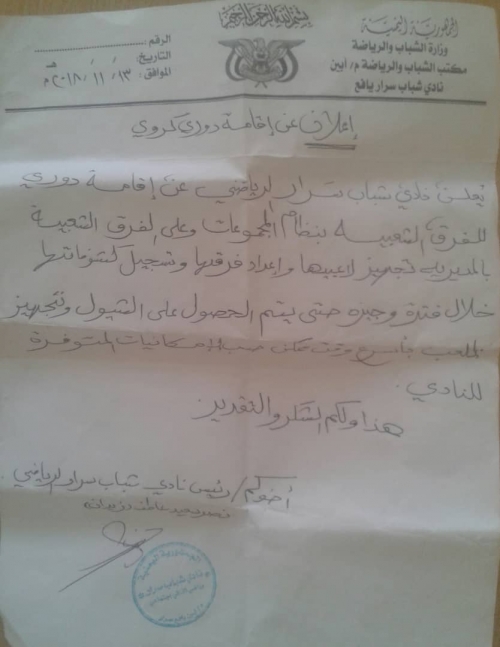 بسم الله الرحمن الرحيم
الجمهورية اليمنية
وزارة الشباب والرياضة
مكتب الشباب والرياضة م/ أبين
نادي شباب سرار يافع
الرقم:
التاريخ: / / هـ
الموافق: ١٣ / ١١ / ٢٠١٨م
إعلان عن إقامة دوري كروي
يعلن نادي شباب سرار الرياضي عن إقامة دوري
للفرق الشعبيه بنظام المجموعات وعلى الفرق الشعبية
بالمديريه تجهيز لاعبيها وإعداد فرقها وتسجيل كشوفاتها
خلال فترة وجيزه حتى يتم الحصول على الشيول وتجهيز
الملعب بأسرع وقت ممكن حسب الإمكانيات المتوفرة
للنادي.
هذا ولكم الشكر والتقدير
أخوكم/ رئيس نادي شباب سرار الرياضي